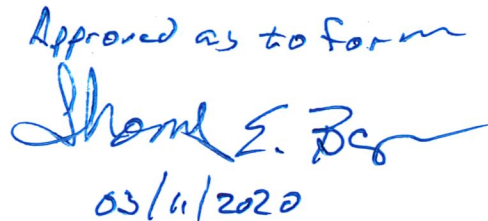 Approved as to form
Thomas E.
03/11/2020